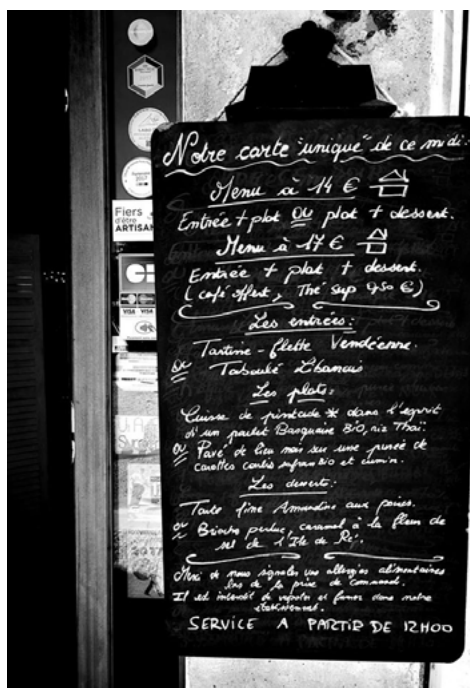 Fiers
d'être
ARTISAN
CB
VISA VISA
2017
Notre carte "unique" de ce midi:
Menu à 14 €
Entrée + plat OU plat + dessert.
Menu à 17 €
Entrée + plat + dessert.
(café offert, Thé sup 0,50 €)
Les entrées:
Tartine-flette Vendéenne.
ou Taboulé Libanais
Les plats:
Cuisse de pintade * dans l'esprit
d'un poulet Basquaise BIO, riz Thaï.
ou Pavé de lieu noir sur une purée de
carottes contis safran BIO et cumin.
Les desserts:
Tarte fine Amandine aux poires.
ou Brioche perdue, caramel à la fleur de
sel de l'Ile de Ré.
Merci de nous signaler vos allergies alimentaires
lors de la prise de commande.
Il est interdit de vapoter et fumer dans notre
établissement.
SERVICE A PARTIR DE 12H00